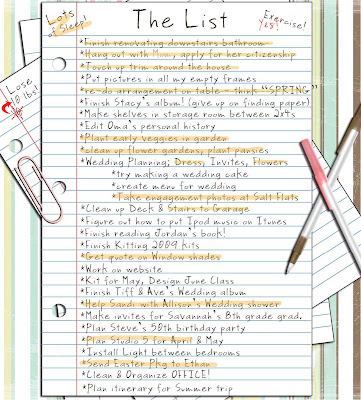 Lots of Sleep!
The List
Exercise! YES!
Lose 10 lbs!
*Finish renovating downstairs bathroom
*Hang out with Mom, apply for her citizenship
*Touch up trim around the house
*Put pictures in all my empty frames
*re-do arrangement on table - think "SPRING"
*Finish Stacy's album! (give up on finding paper)
*Make shelves in storage room between 2x4s
*Edit Oma's personal history
*Plant early veggies in garden
*clean up flower gardens, plant pansies
*Wedding Planning; Dress, Invites, Flowers
*try making a wedding cake
*create menu for wedding
*Take engagement photos at Salt Flats
*Clean up Deck & Stairs to Garage
*Figure out how to put Ipod music on Itunes
*Finish reading Jordan's book!
*Finish Kitting 2009 kits
*Get quote on Window shades
*Work on website
*Kit for May, Design June Class
*Finish Tiff & Ave's Wedding album
*Help Sandi with Allison's Wedding shower
*Make invites for Savannah's 8th grade grad.
*Plan Steve's 50th birthday party
*Plan Studio 5 for April & May
*Install Light between bedrooms
*Send Easter Pkg to Ethan
*Clean & Organize OFFICE!
*Plan itinerary for Summer trip